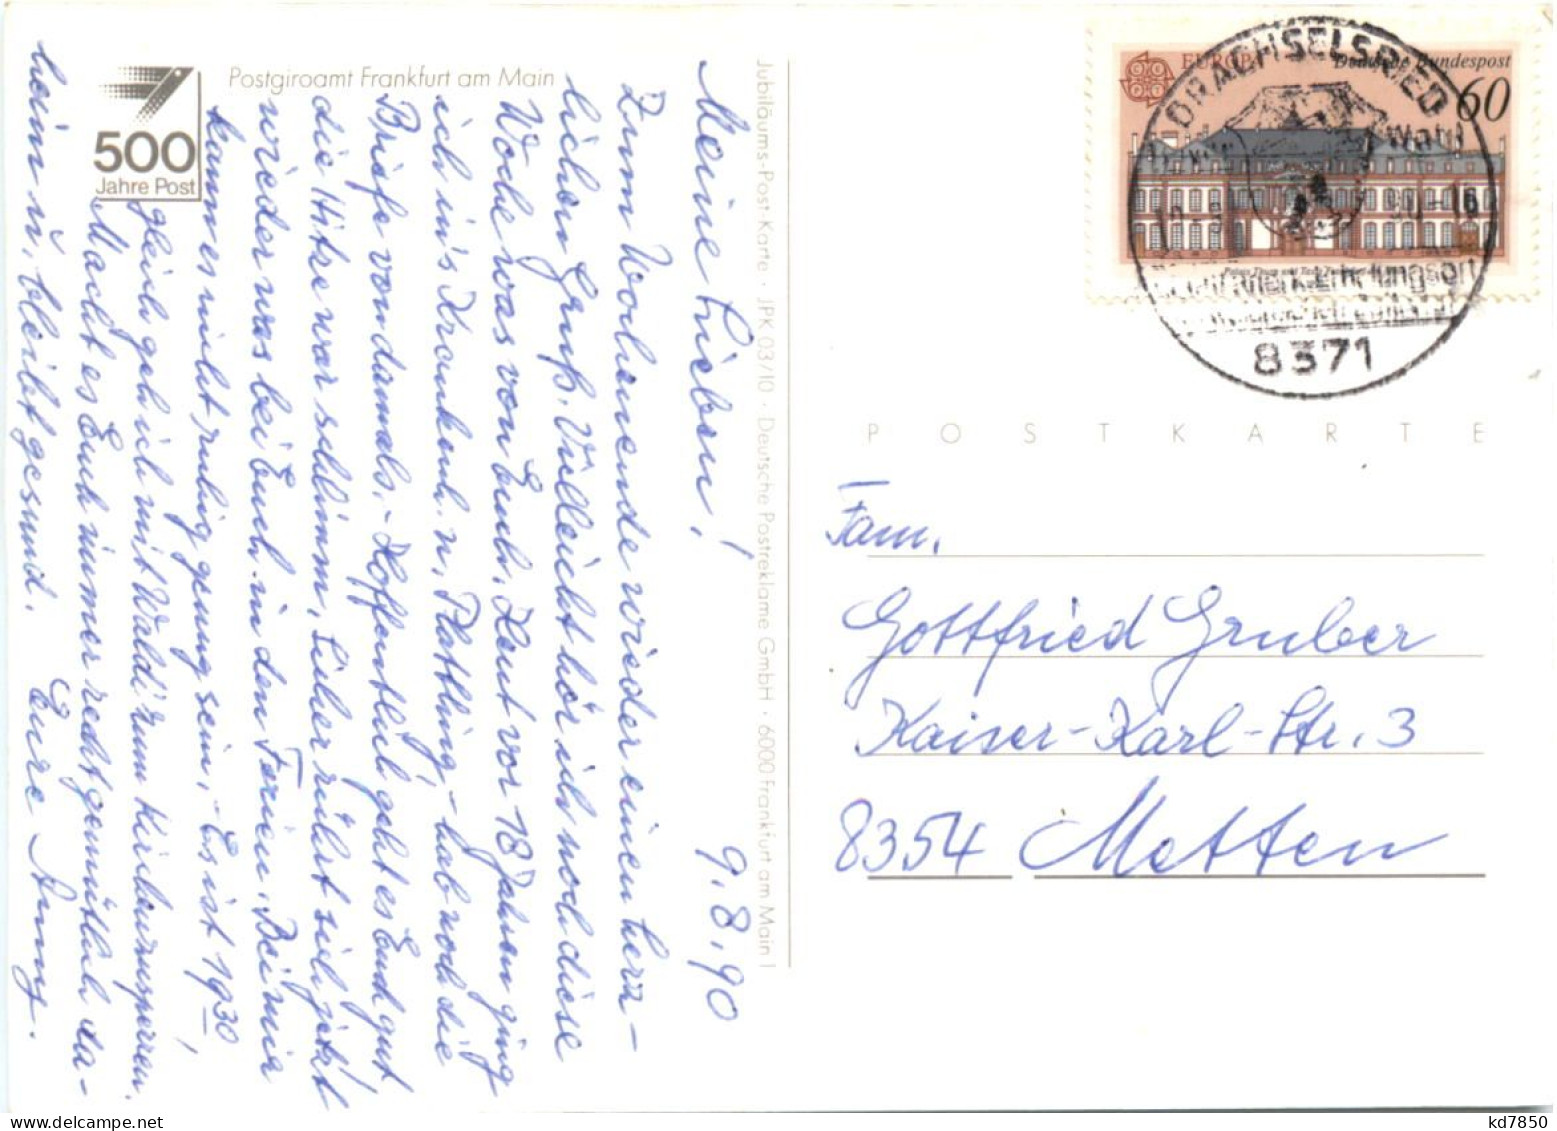 Postgiroamt Frankfurt am Main
500
Jahre Post
Meine Lieben!
9.8.90
Zum Wochenende wieder einen herz-
lichen Gruß. Vielleicht hör ich noch diese
Woche was von Euch. Heut vor 18 Jahren ging
ich in's Krankenh. n. Plattling - hab noch die
Briefe von damals. - Hoffentlich geht es Euch gut
die Hitze war schlimm. Lieber rührt sich jetzt
wieder was bei Euch in den Ferien. Bei mir
kann es nicht ruhig genug sein. - Es ist 19³⁰,
gleich geh ich mit Waldi zum
Macht es Euch immer recht gemütlich da-
heim u. bleibt gesund.
Eure Anny.
Jubiläums-Post-Karte · JPK 03/10 · Deutsche Postreklame GmbH · 6000 Frankfurt am Main 1
EUROPA
Deutsche Bundespost
60
DRACHSELSRIED
8371
POSTKARTE
Fam.
Gottfried Gruber
Kaiser-Karl-Str. 3
8354 Metten
kd7850